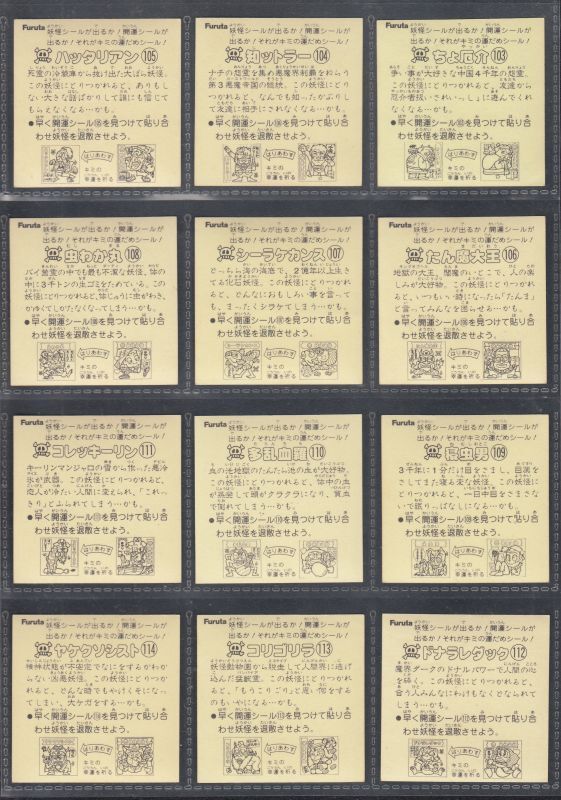 Furuta 妖怪シールが出るか!開運シールが
出るか!それがキミの運だめシール!
ハッタリアン 105
この妖怪にとりつかれると、ありもし
ない大きな話ばかりして誰にも信じて
もらえなくなる…かも。
●早く開運シール105を見つけて貼り合
わせ妖怪を退散させよう。
はりあわす
キミの
幸運を祈る
Furuta 妖怪シールが出るか!開運シールが
出るか!それがキミの運だめシール!
知ットラー 104
●早く開運シール104を見つけて貼り合
わせ妖怪を退散させよう。
はりあわす
キミの
幸運を祈る
Furuta 妖怪シールが出るか!開運シールが
出るか!それがキミの運だめシール!
ちょ厄介 103
争い事が大好きな中国4千年の怨霊。
この妖怪にとりつかれると、友達から
●早く開運シール103を見つけて貼り合
わせ妖怪を退散させよう。
はりあわす
キミの
幸運を祈る
Furuta 妖怪シールが出るか!開運シールが
出るか!それがキミの運だめシール!
虫わか丸 108
の中に3千トンの生ゴミをためている。この
妖怪にとりつかれると、体じゅうに虫がわき、
かゆくてしかたなくなってしまう…かも。
●早く開運シール108を見つけて貼り合
わせ妖怪を退散させよう。
はりあわす
キミの
幸運を祈る
Furuta 妖怪シールが出るか!開運シールが
出るか!それがキミの運だめシール!
シーラケカンス 107
る化石妖怪。この妖怪にとりつかれ
ると、どんなにおもしろい事を言って
も、まったくシラケてしまう…かも。
●早く開運シール107を見つけて貼り合
わせ妖怪を退散させよう。
はりあわす
キミの
幸運を祈る
Furuta 妖怪シールが出るか!開運シールが
出るか!それがキミの運だめシール!
たん魔大王 106
地獄の大王、閻魔のいとこで、人の楽
しみが大好物。この妖怪にとりつかれ
ると、いつもいい時になったら「たんま」
と言ってみんなを困らせる…かも。
●早く開運シール106を見つけて貼り合
わせ妖怪を退散させよう。
はりあわす
キミの
幸運を祈る
Furuta 妖怪シールが出るか!開運シールが
出るか!それがキミの運だめシール!
コレッキーリン 111
キーリンマンジャロの雪から作った悪冷
氷が武器。この妖怪にとりつかれると、
恋人が冷たい人間に変えられ、「これっ
きり」とふられてしまう…かも。
●早く開運シール111を見つけて貼り合
わせ妖怪を退散させよう。
はりあわす
キミの
幸運を祈る
Furuta 妖怪シールが出るか!開運シールが
出るか!それがキミの運だめシール!
多乱血羅 110
血の池地獄のたんたん池の血が大好物。
この妖怪にとりつかれると、体中の血
が蒸発して頭がクラクラになり、貧血
で倒れてしまう…かも。
●早く開運シール110を見つけて貼り合
わせ妖怪を退散させよう。
はりあわす
キミの
幸運を祈る
Furuta 妖怪シールが出るか!開運シールが
出るか!それがキミの運だめシール!
寝虫男 109
3千年に1分だけ目をさまし、目薬を
さしてまた寝る変な妖怪。この妖怪に
とりつかれると、一日中目をさまさな
いで眠りっぱなしになる…かも。
●早く開運シール109を見つけて貼り合
わせ妖怪を退散させよう。
はりあわす
キミの
幸運を祈る
Furuta 妖怪シールが出るか!開運シールが
出るか!それがキミの運だめシール!
ヤケクソシスト 114
精神状態が不安定でなにをするかわか
らない凶悪妖怪。この妖怪にとりつかれ
ると、どんな時でもやけくそになっ
てしまい、大ケガをする…かも。
●早く開運シール114を見つけて貼り合
わせ妖怪を退散させよう。
はりあわす
キミの
幸運を祈る
Furuta 妖怪シールが出るか!開運シールが
出るか!それがキミの運だめシール!
コリゴリラ 113
妖怪動物園から脱走して人間界に逃げ
込んだ猛獣霊。この妖怪にとりつかれ
ると、「もうこりごり」と思い何をする
のもいやになる…かも。
●早く開運シール113を見つけて貼り合
わせ妖怪を退散させよう。
はりあわす
キミの
幸運を祈る
Furuta 妖怪シールが出るか!開運シールが
出るか!それがキミの運だめシール!
ドナラレダック 112
魔界ダークのドナルパワーで人間の心
を操る。この妖怪にとりつかれると、
会う人みんなにわけもなくどなられて
しまう…かも。
●早く開運シール112を見つけて貼り合
わせ妖怪を退散させよう。
はりあわす
キミの
幸運を祈る